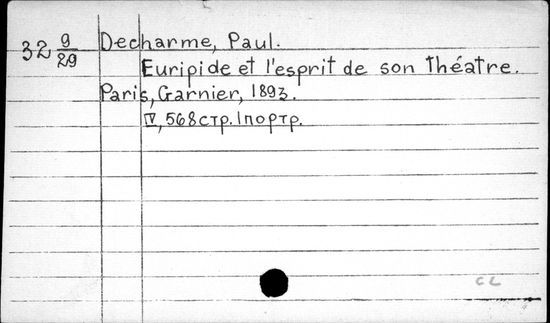 32 9/29 Decharme, Paul.
Euripide et l'esprit de son théatre.
Paris, Garnier, 1893.
IV, 568 стр. 1 портр.
CL